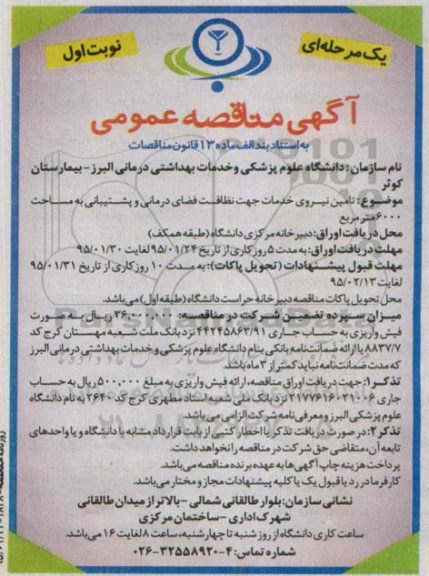 یک مرحله‌ای
نوبت اول
آگهی مناقصه عمومی
به استناد بند الف ماده ۱۳ قانون مناقصات
نام سازمان: دانشگاه علوم پزشکی و خدمات بهداشتی درمانی البرز - بیمارستان
کوثر
موضوع: تامین نیروی خدمات جهت نظافت فضای درمانی و پشتیبانی به مساحت
۶۰۰۰ متر مربع
محل دریافت اوراق: دبیرخانه مرکزی دانشگاه (طبقه همکف)
مهلت دریافت اوراق: به مدت ۵ روز کاری از تاریخ ۹۵/۰۱/۲۴ لغایت ۹۵/۰۱/۳۰
مهلت قبول پیشنهادات (تحویل پاکات): به مدت ۱۰ روز کاری از تاریخ ۹۵/۰۱/۳۱
لغایت ۹۵/۰۲/۱۳
محل تحویل پاکات مناقصه دبیرخانه حراست دانشگاه (طبقه اول) می‌باشد.
میزان سپرده تضمین شرکت در مناقصه: ۳۶۰،۰۰۰،۰۰۰ ریال بصورت
فیش واریزی به حساب جاری ۴۴۲۴۵۸۶۳/۹۱ نزد بانک ملت شعبه مهستان کرج کد
۸۸۳۷/۷ یا ارائه ضمانت‌نامه بانکی بنام دانشگاه علوم پزشکی و خدمات بهداشتی درمانی البرز
که مدت ضمانت‌نامه نباید کمتر از ۳ ماه باشد.
تذکر ۱: جهت دریافت اوراق مناقصه، ارائه فیش واریزی به مبلغ ۵۰۰،۰۰۰ ریال به حساب
جاری ۲۱۷۷۶۱۶۰۲۱۰۰۶ نزد بانک ملی شعبه استاد مطهری کرج کد ۲۶۴۰ به نام دانشگاه
علوم پزشکی البرز و معرفی نامه شرکت الزامی می باشد.
تذکر ۲: در صورت دریافت تذکر یا اخطار کتبی از بابت قرارداد مشابه با دانشگاه و یا واحدهای
تابعه آن، متقاضی حق شرکت در مناقصه را نخواهد داشت.
پرداخت هزینه چاپ آگهی‌ها به عهده برنده مناقصه می‌باشد.
کارفرما در رد یا قبول یک یا کلیه پیشنهادات مجاز و مختار می‌باشد.
نشانی سازمان: بلوار طالقانی شمالی - بالاتر از میدان طالقانی
شهرک اداری - ساختمان مرکزی
ساعت کاری دانشگاه از روز شنبه تا چهارشنبه، ساعت ۸ لغایت ۱۶ می‌باشد.
شماره تماس: ۴-۳۲۵۵۸۹۲۰-۰۲۶